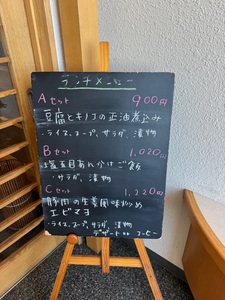 ランチメニュー
Aセット 900円
豆腐とキノコの正油煮込み
・ライス、スープ、サラダ、漬物
Bセット 1,020円
塩五目あんかけご飯
・サラダ、漬物
Cセット 1,220円
豚肉の生姜風味炒め
エビマヨ
・ライス、スープ、サラダ、漬物
デザート or コーヒー